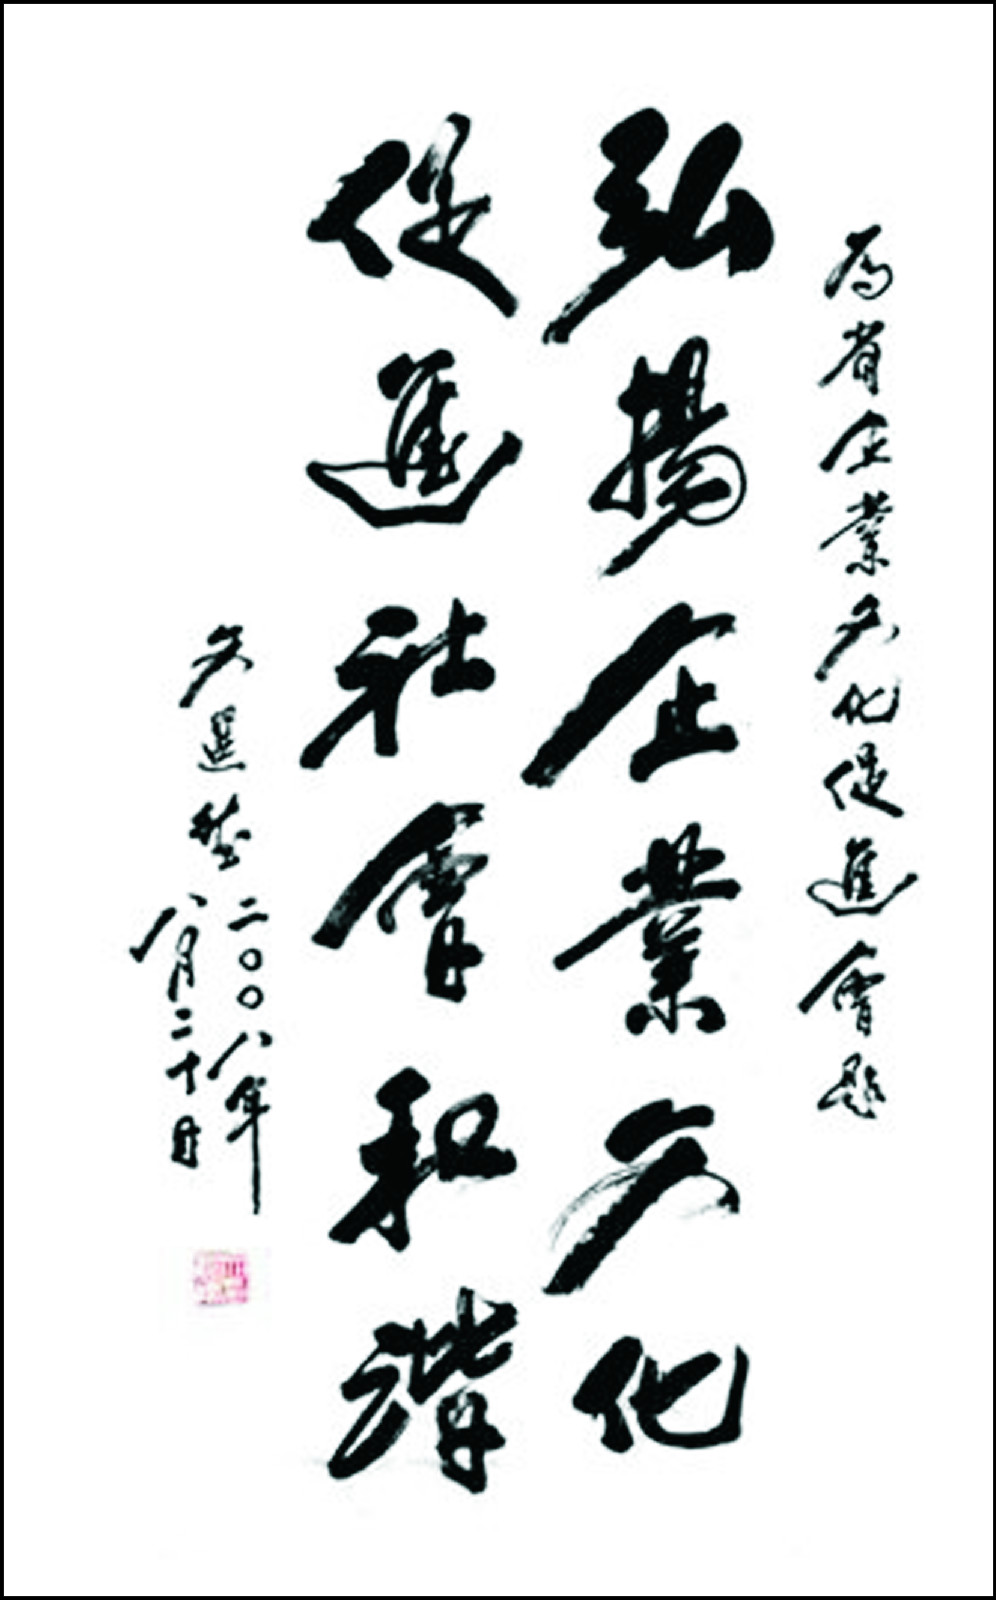 為省企業文化促進會題
弘揚企業文化
促進社會和諧
文選德 二〇〇八年
八月二十日